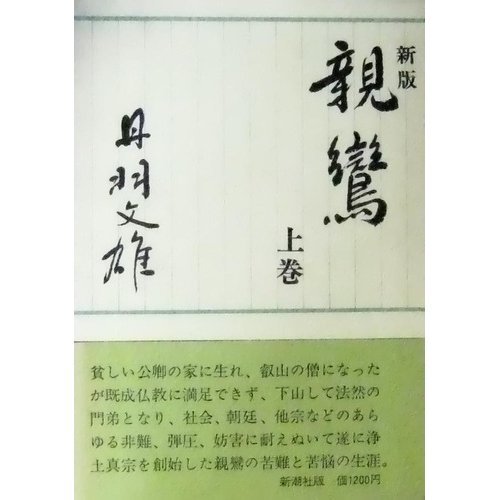 新版
親鸞
上巻
丹羽文雄
貧しい公卿の家に生れ、叡山の僧になった
が既成仏教に満足できず、下山して法然の
門弟となり、社会、朝廷、他宗などのあら
ゆる非難、弾圧、妨害に耐えぬいて遂に浄
土真宗を創始した親鸞の苦難と苦悩の生涯。
新潮社版 価1200円